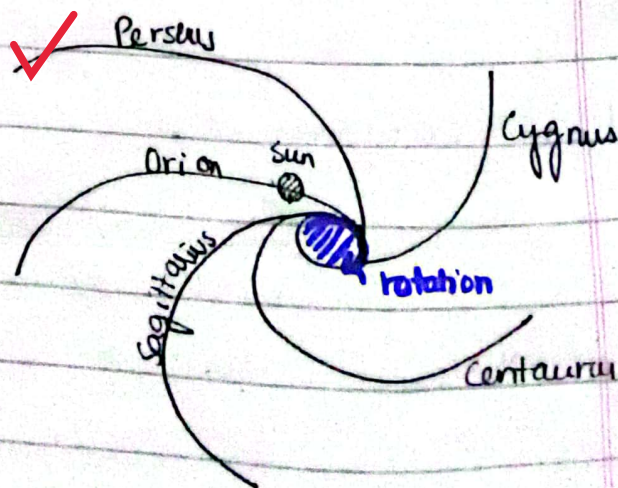 Perseus
Cygnus
Sun
Orion
Sagittarius
rotation
Centauru